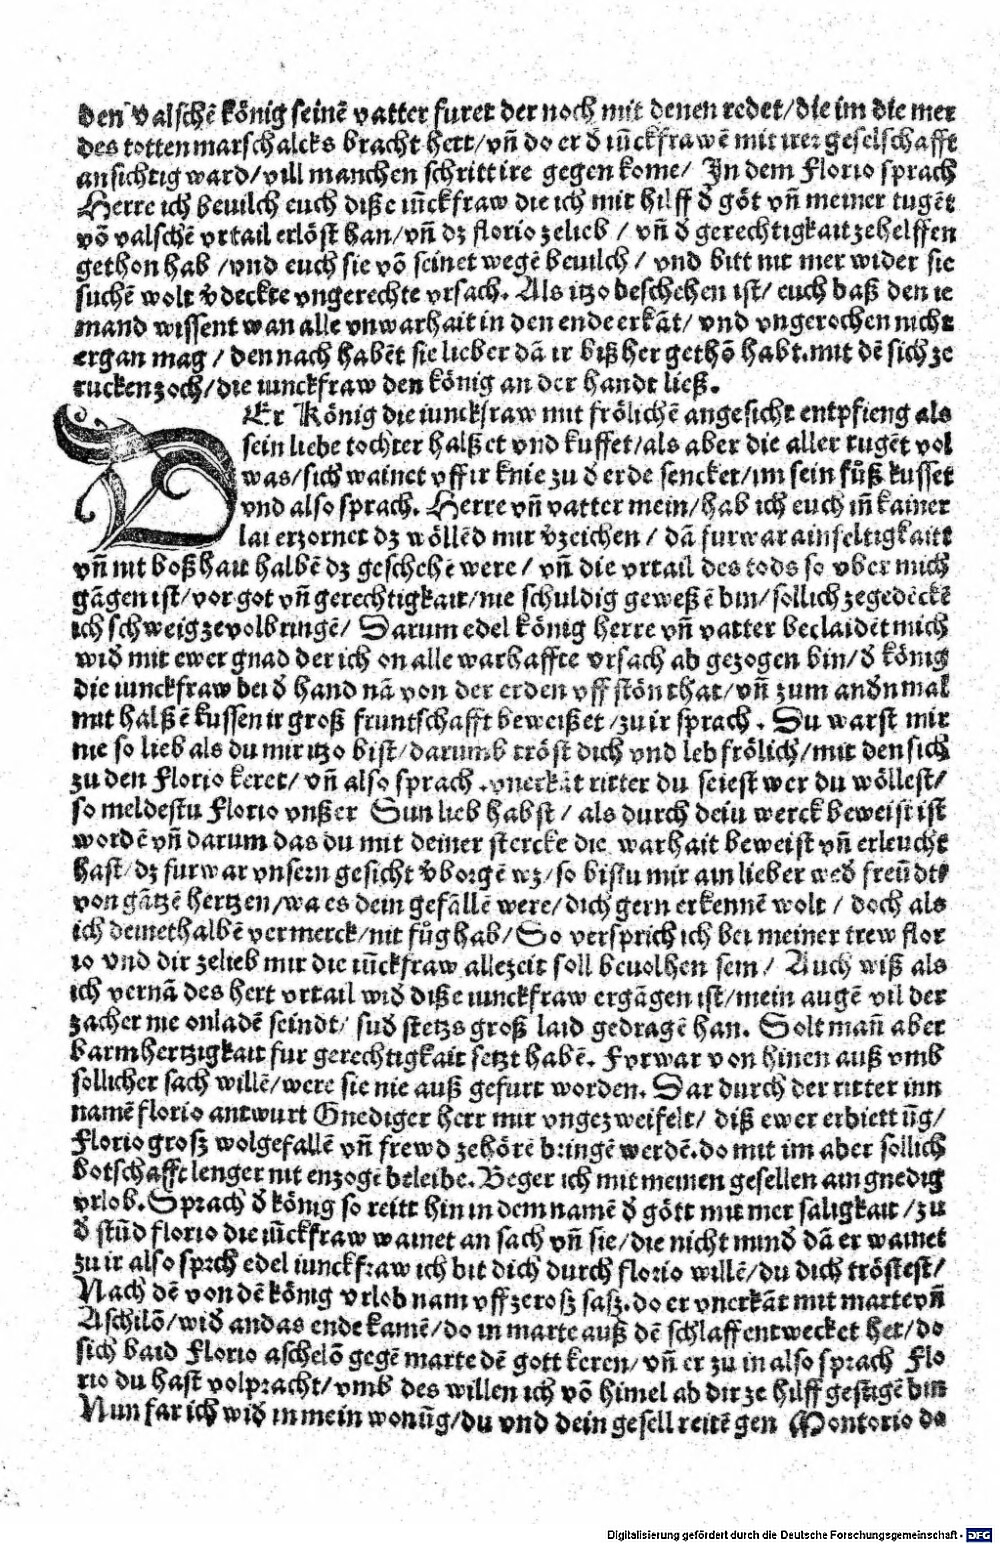 den valschē könig seinē vatter furet der noch mit denen redet/die im die mer
des totten marschalcks bracht hett/vñ do er d iūckfrawē mit irer geselschafft
ansichtig ward/vill manchen schritt ire gegen kome/ In dem Florio sprach
Herre ich beuilch euch diße iūckfraw die ich mit hilff d göt vñ meiner tugēt
vō valschē vrtail erlößt han/vñ dz florio zelieb / vñ d gerechtigkait zehelffen
gethon hab /vnd euch sie vō seinet wegē beuilch / vnd bitt nit mer wider sie
suchē wolt v̄deckte vngerechte vrsach. Als itzo beschehen ist/ euch baß den ie
mand wissent wan alle vnwarhait in den ende erkāt/ vnd vngerochen nicht
ergan mag / den nach habēt sie lieber dā ir biß her gethō habt. mit dē sich ze
rucken zoch/die iunckfraw den könig an der handt ließ.
DEr König die iunckfraw mit frölichē angesicht entpfieng als
sein liebe tochter halßet vnd kusset/als aber die aller tugēt vol
was/sich wainet vff ir knie zu d erde sencket/im sein fůß kusset
vnd also sprach. Herre vñ vatter mein/hab ich euch iñ kainer
lai erzornet dz wöllēd mir v̄zeichen / dā furwar ainfeltigkaitt
vñ nit boßhait halbē dz geschehē were / vñ die vrtail des tods so vber mich
gāgen ist/vor got vñ gerechtigkait/nie schuldig geweßē bin/sollich zegedēckē
ich schweig ze volbringē/ Darum edel könig herre vñ vatter beclaidēt mich
wid mit ewer gnad der ich on alle warhaffte vrsach ab gezogen bin/d könig
die iunckfraw bei d hand nā von der erden vff stōn that/vñ zum andn mal
mit halßē kussen ir groß fruntschafft beweißet/zu ir sprach . Du warst mir
nie so lieb als du mir itzo bist/darumb tröst dich vnd leb frölich/mit den sich
zu den Florio keret/ vñ also sprach .vnerkāt ritter du seiest wer du wöllest/
so meldestu Florio vnßer Sun lieb habst / als durch dein werck beweist ist
wordē vñ darum das du mit deiner stercke die warhait beweist vñ erleucht
hast/dz furwar vnsern gesicht v̄borgē wz/so bistu mir ain lieber wed freūdts
von gātzē hertzen/wa es dein gefallē were/dich gern erkennē wolt / doch als
ich deinethalbē vermerck/nit fůg hab/ So versprich ich bei meiner trew flor
io vnd dir zelieb mir die iūckfraw allezeit soll beuolhen sein/ Auch wiß als
ich vernā des hert vrtail wid diße iunckfraw ergāgen ist/mein augē vil der
zacher nie onladē seindt/ sud stetzs groß laid gedragē han. Solt mañ aber
barmhertzigkait fur gerechtigkait setzt habē. Furwar von hinen auß vmb
sollicher sach willē/were sie nie auß gefurt worden. Dar durch der ritter inn
namē florio antwurt Gnediger herr mir vngezweifelt/ diß ewer erbiettūg/
Florio grosz wolgefallē vñ frewd zehörē bringē werdē. do mit im aber sollich
botschafft lenger nit enzogē beleibe. Beger ich mit meinen gesellen ain gnedig
vrlob. Sprach d könig so reitt hin in dem namē d gött mit mer saligkait /zu
d stūd florio die iūckfraw wainet an sach vñ sie/die nicht mind dā er wainet
zu ir also sprch edel iunckfraw ich bit dich durch florio willē/du dich tröstest/
Nach dē von dē könig vrlob nam vff ze rosz sasz. do er vnerkāt mit marte vñ
Aschilō/wid an das ende kamē/do in marte auß dē schlaff entwecket het/do
sich baid Florio aschelō gegē marte dē gott keren/ vñ er zu in also sprach Flo
rio du hast volpracht/vmb des willen ich vō himel ab dir ze hilff gestigē bin
Nun far ich wid in mein wonūg/du vnd dein gesell reitē gen Montorio da
Digitalisierung gefördert durch die Deutsche Forschungsgemeinschaft - DFG